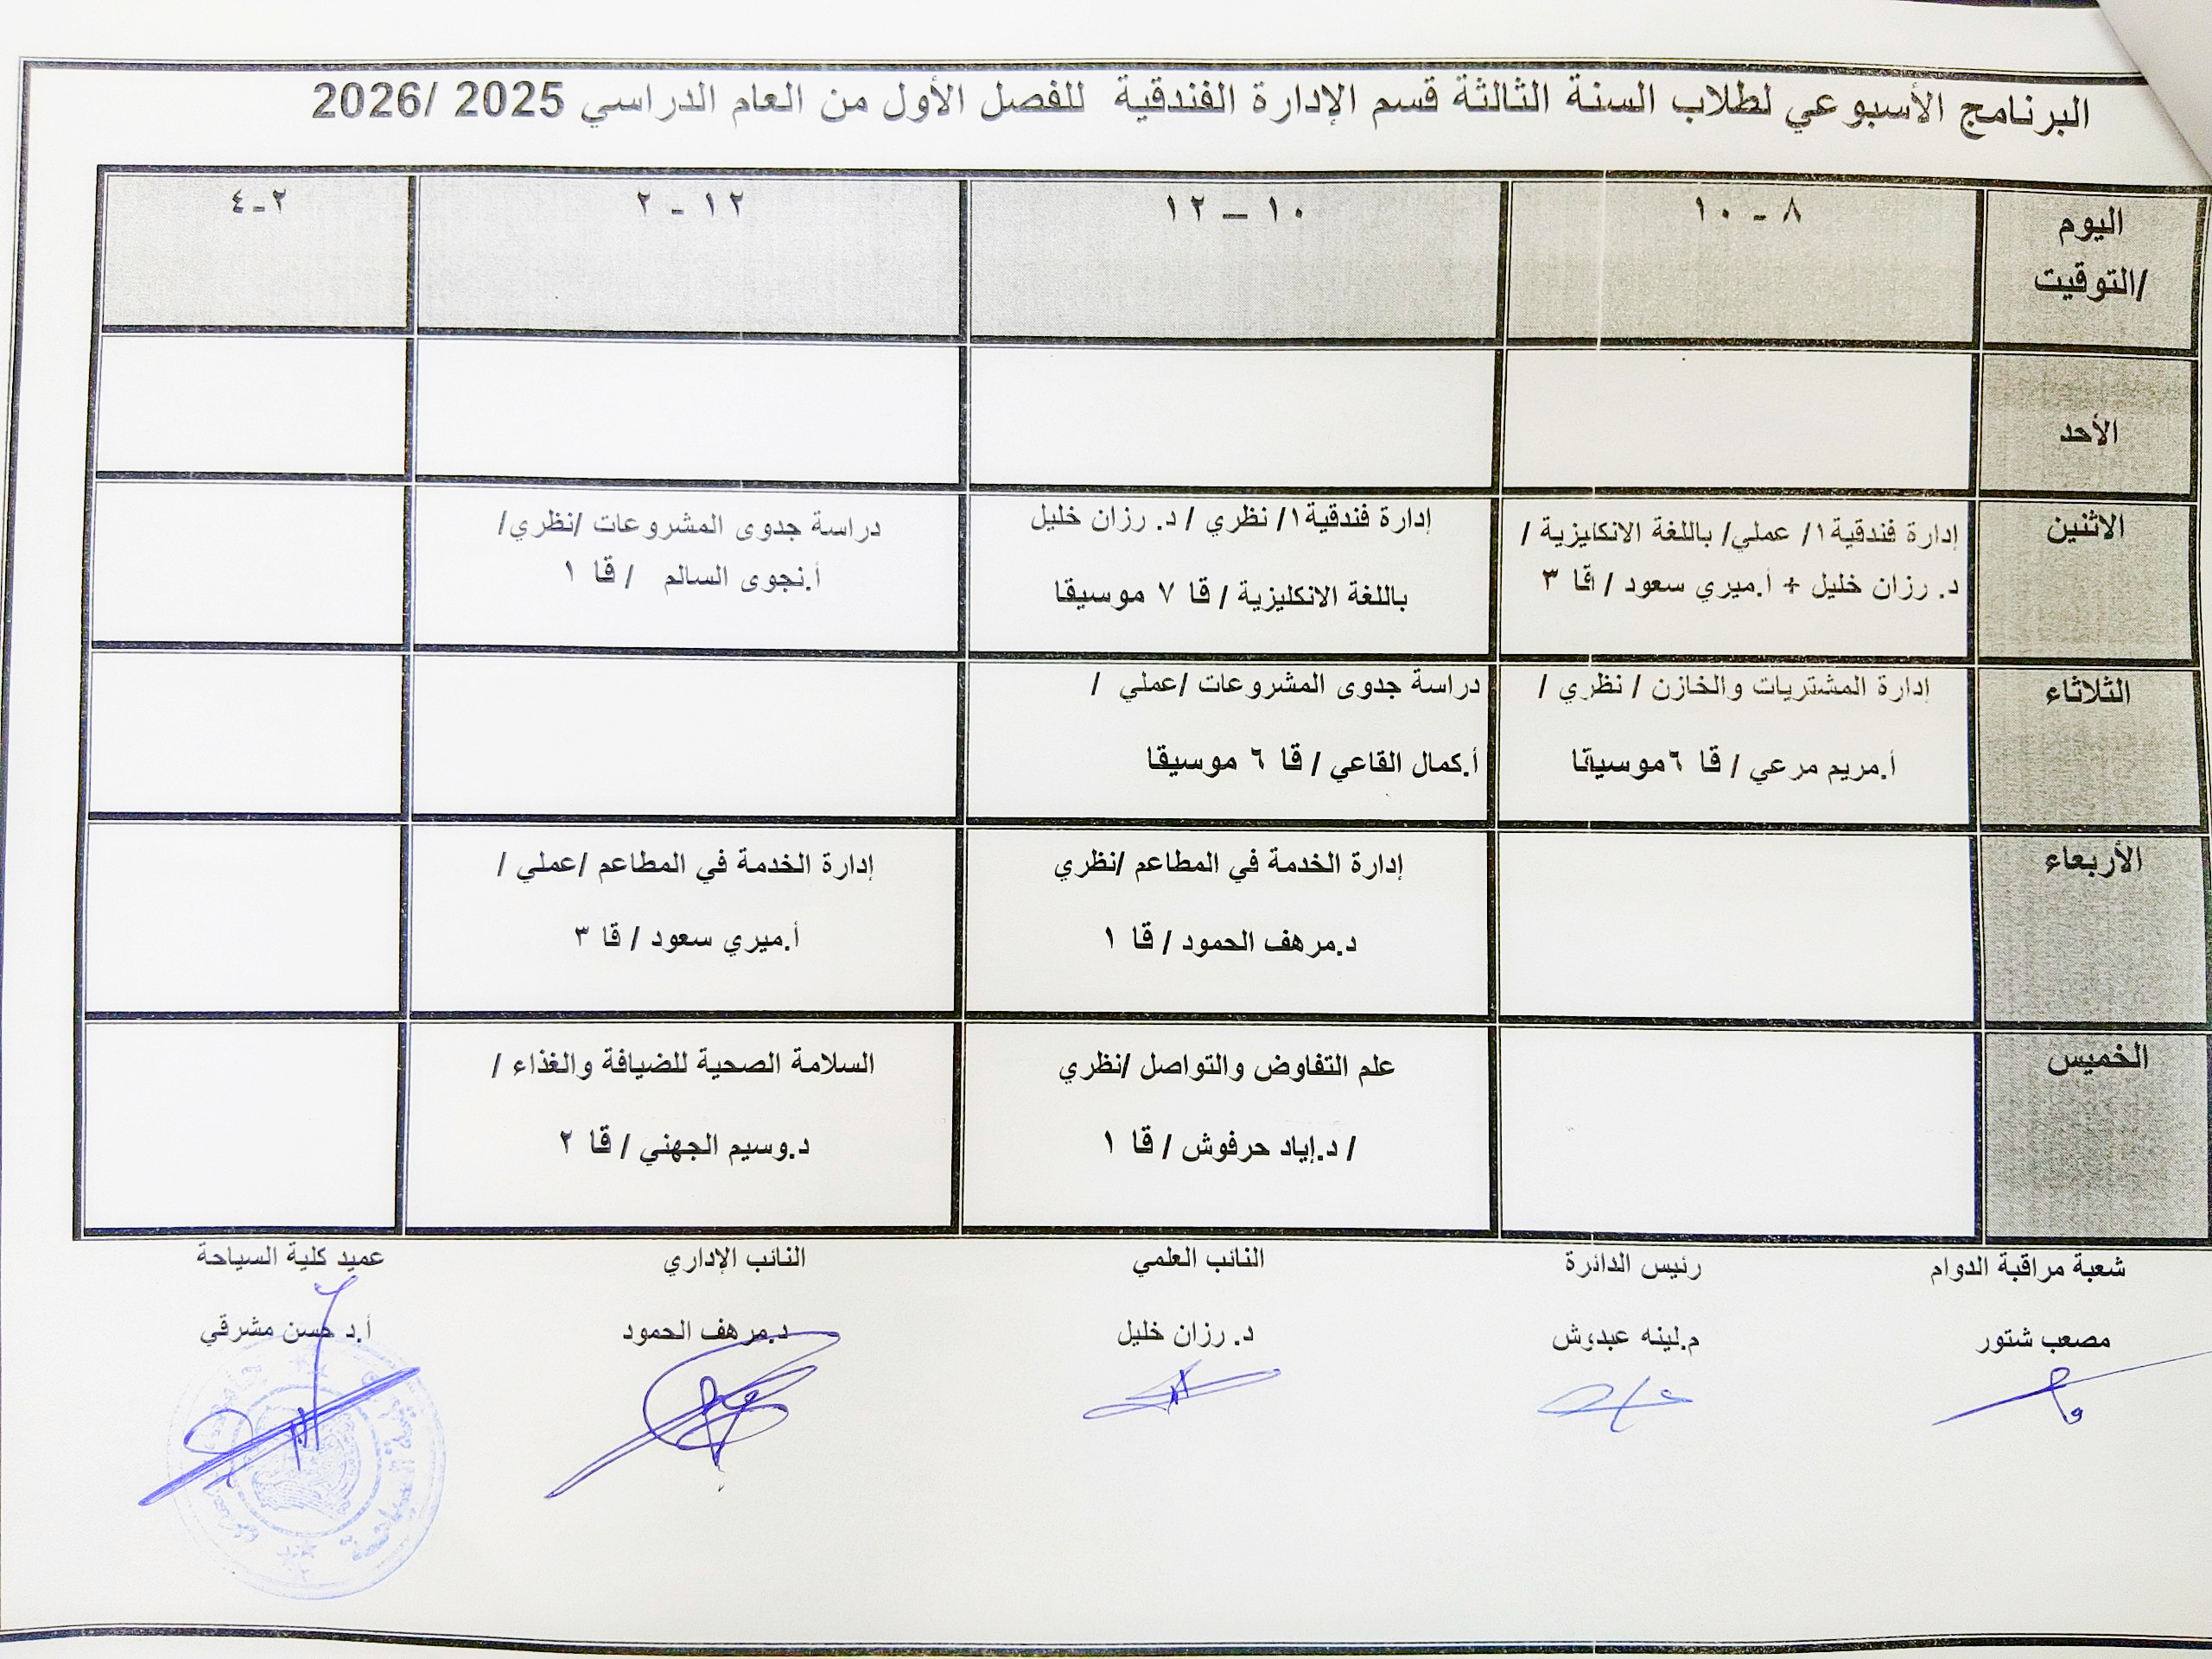 البرنامج الأسبوعي لطلاب السنة الثالثة قسم الإدارة الفندقية للفصل الأول من العام الدراسي 2025 /2026
اليوم
/التوقيت
٨ - ١٠
١٠ – ١٢
١٢ - ٢
٢-٤
الأحد
الاثنين
إدارة فندقية١/ عملي/ باللغة الانكليزية /
د. رزان خليل + أ.ميري سعود / قا ٣
إدارة فندقية١/ نظري / د. رزان خليل
باللغة الانكليزية / قا ٧ موسيقا
دراسة جدوى المشروعات /نظري/
أ.نجوى السالم / قا ١
الثلاثاء
إدارة المشتريات والخازن / نظري /
أ.مريم مرعي / قا ٦موسيقا
دراسة جدوى المشروعات /عملي /
أ.كمال القاعي / قا ٦ موسيقا
الأربعاء
إدارة الخدمة في المطاعم /نظري
د.مرهف الحمود / قا ١
إدارة الخدمة في المطاعم /عملي /
أ.ميري سعود / قا ٣
الخميس
علم التفاوض والتواصل /نظري
/ د.إياد حرفوش / قا ١
السلامة الصحية للضيافة والغذاء /
د.وسيم الجهني / قا ٢
شعبة مراقبة الدوام
رئيس الدائرة
النائب العلمي
النائب الإداري
عميد كلية السياحة
مصعب شتور
م.لينه عبدوش
د. رزان خليل
د.مرهف الحمود
أ.د حسن مشرقي